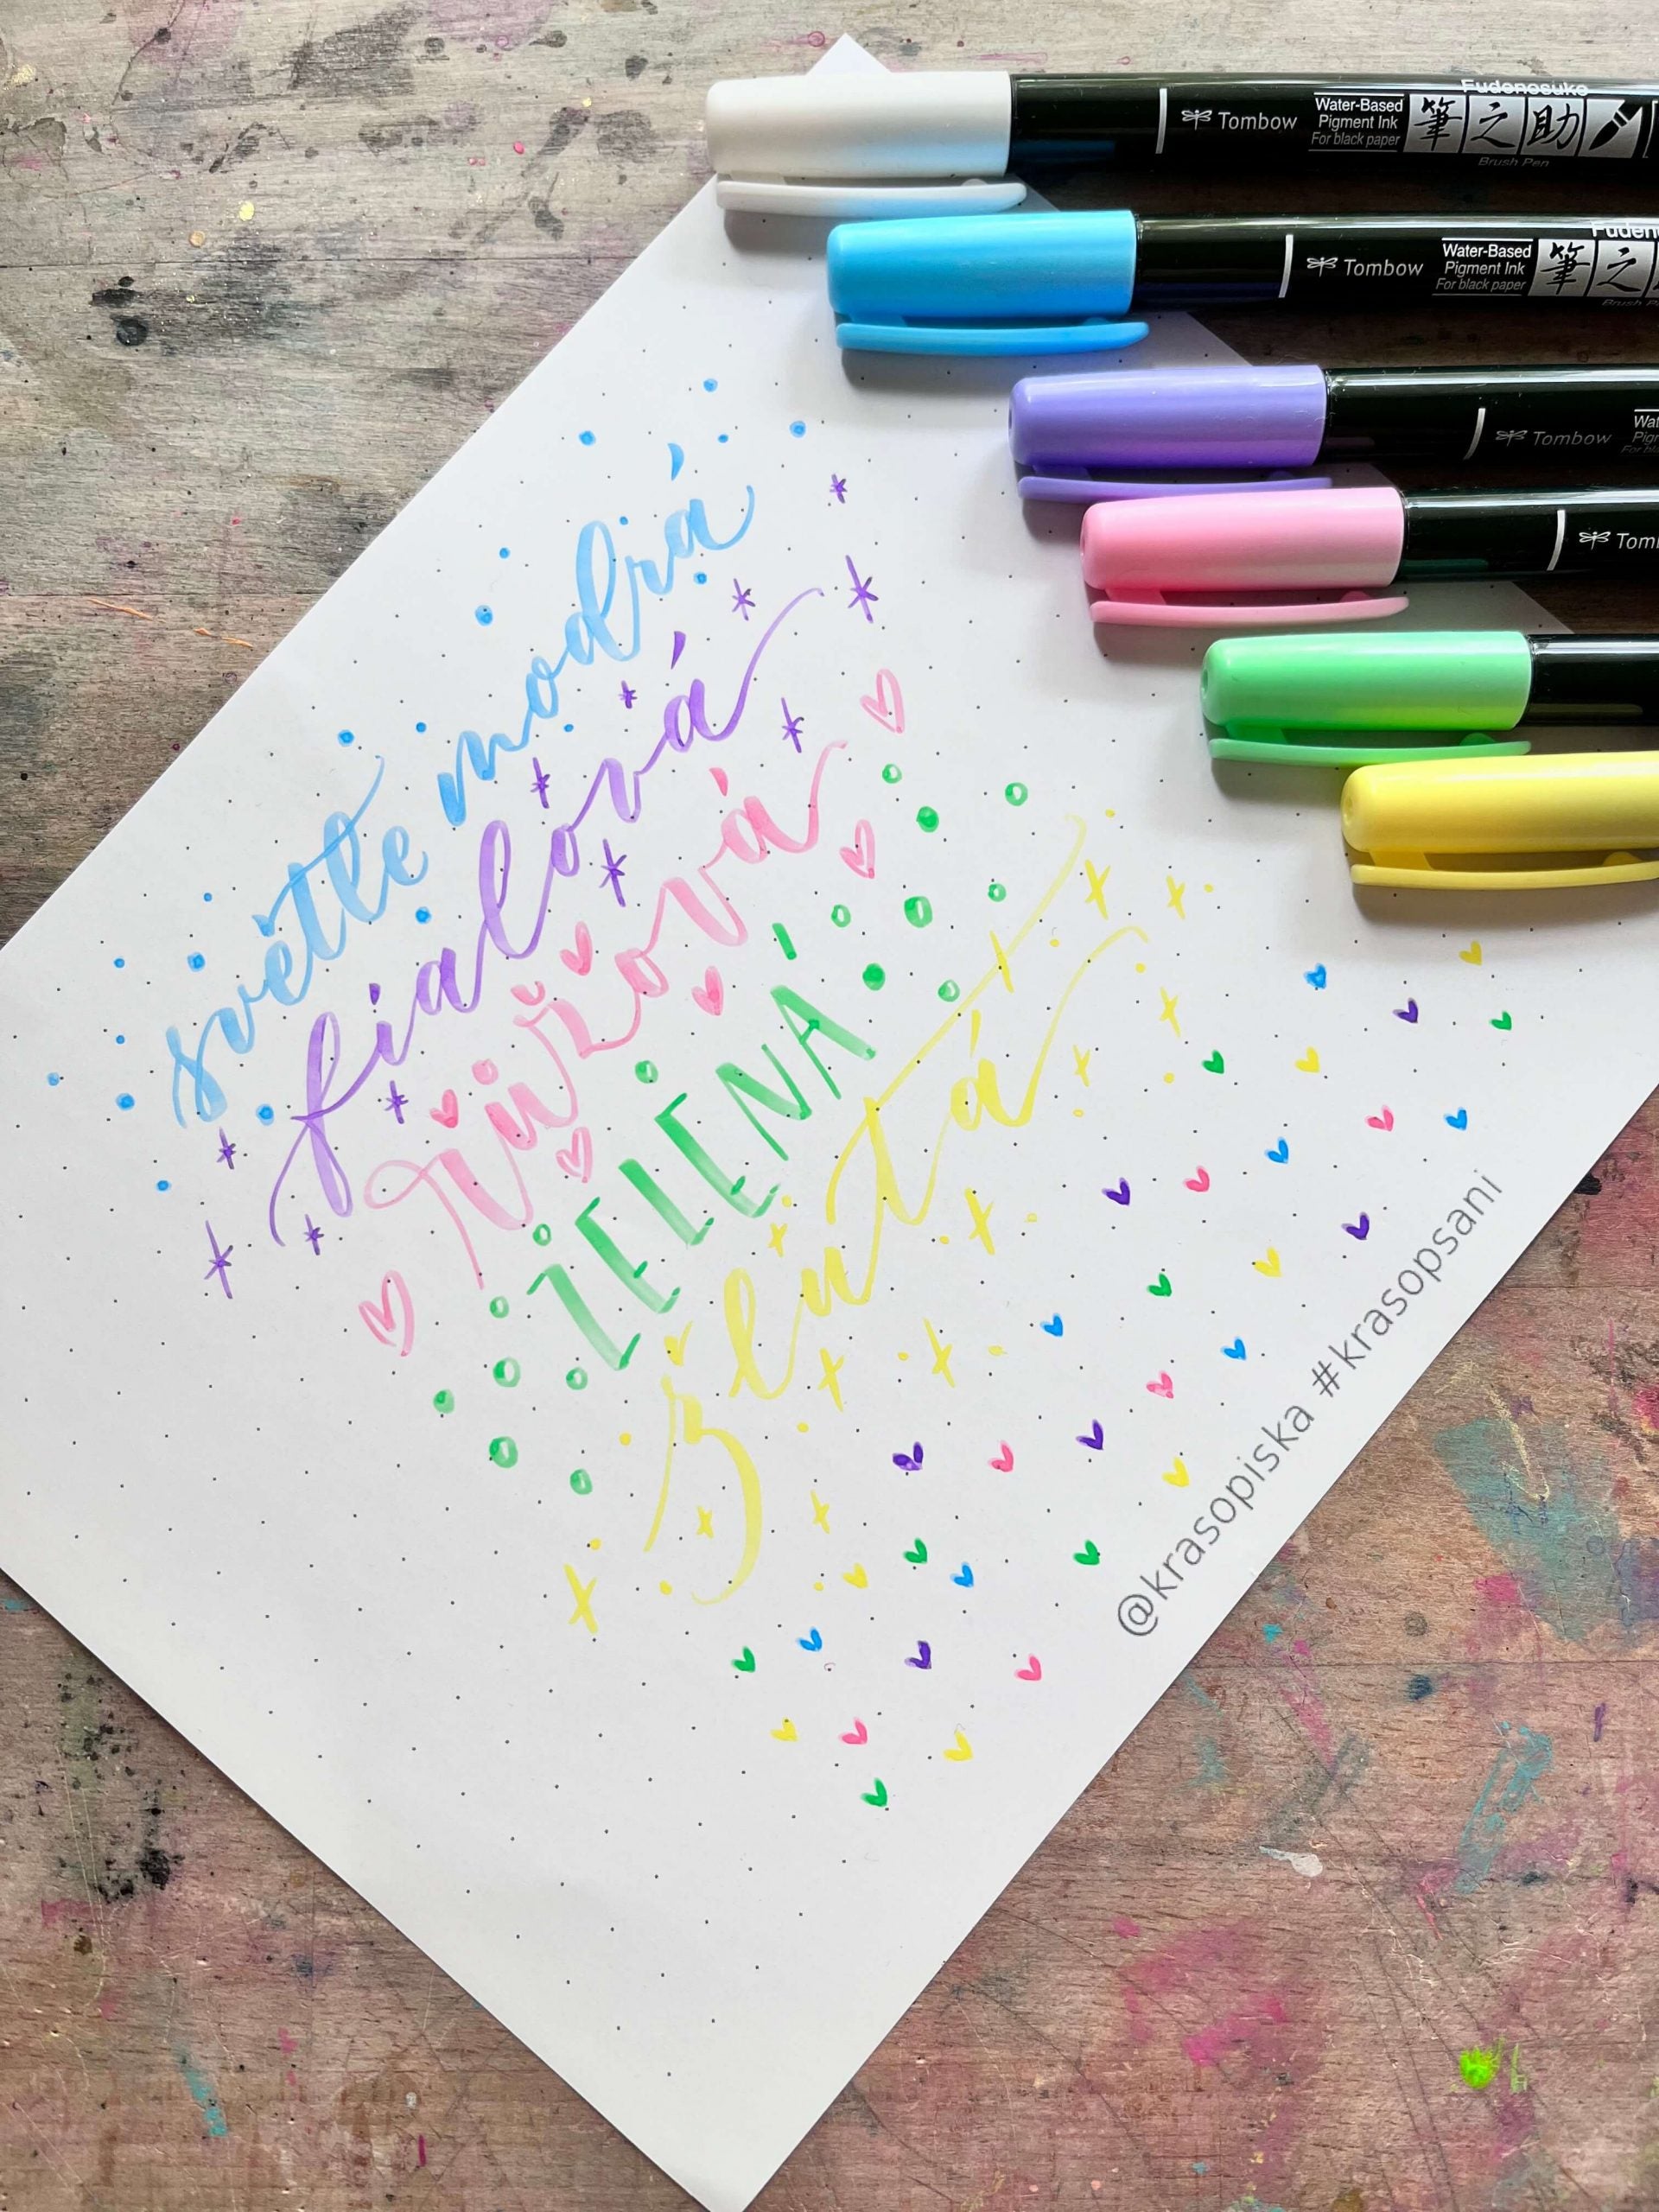 Fudenosuke
Tombow
Water-Based
Pigment Ink
For black paper
筆之助
Brush Pen
Fuden
Tombow
Water-Based
Pigment Ink
For black paper
筆之
Brush P
Tombow
Wat
Pig
Tom
světle modrá
fialová
růžová
ZELENÁ
žlutá
@krasopiska #krasopsani